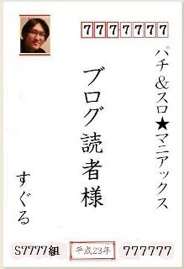 7777777
パチ&スロ★マニアックス
ブログ読者様
すぐる
S7777組 平成23年 777777